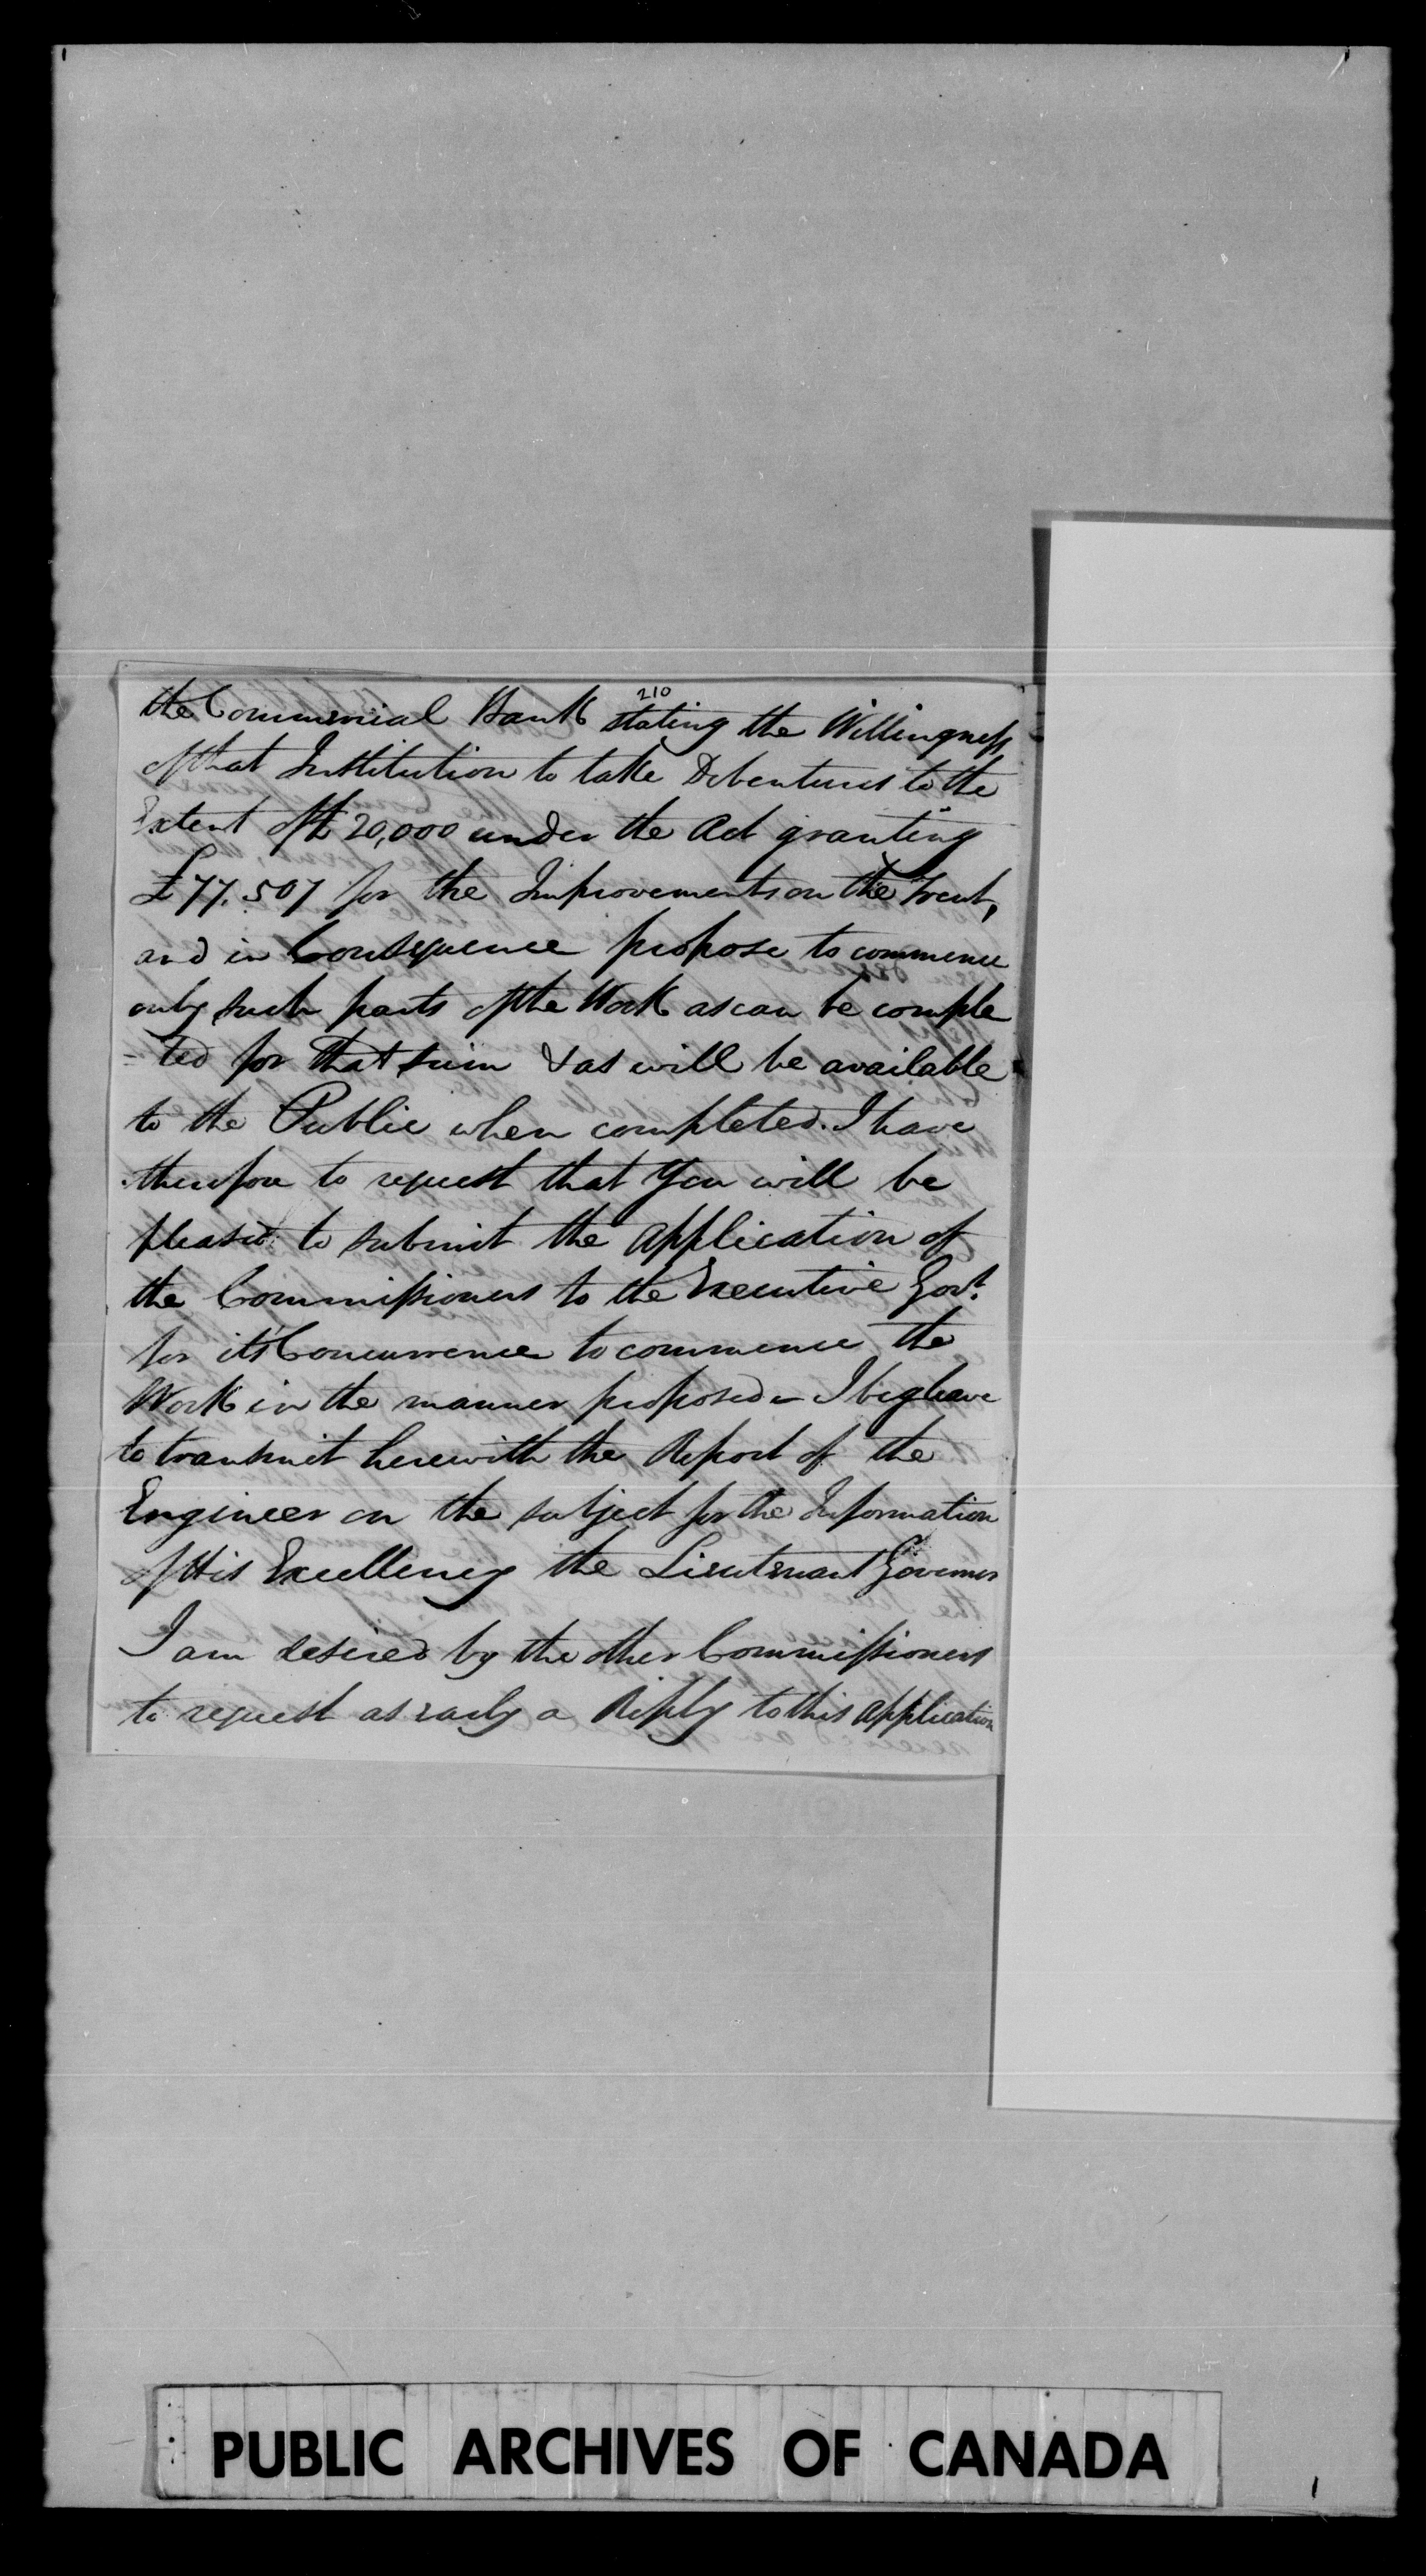 210
the Commercial Bank stating the Willingness
of that Institution to take Debentures to the
Extent of £20,000 under the Act granting
£77.507 for the Improvements on the Trent,
and in Consequence propose to commence
only such parts of the Work as can be comple
-ted for that sum & as will be available
to the Public when completed. I have
therefore to request that You will be
pleased to submit the application of
the Commissioners to the Executive Govt.
for it's Concurrence to commence the
Work in the manner proposed - I beg leave
to transmit herewith the Report of the
Engineer on the subject for the Information
of His Excellency the Lieutenant Governor
I am desired by the other Commissioners
to request as early a Reply to this application
PUBLIC ARCHIVES OF CANADA